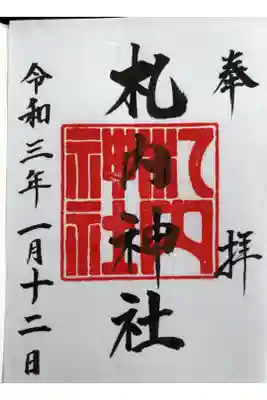 奉拝
札内神社
令和三年一月十二日
札内神社